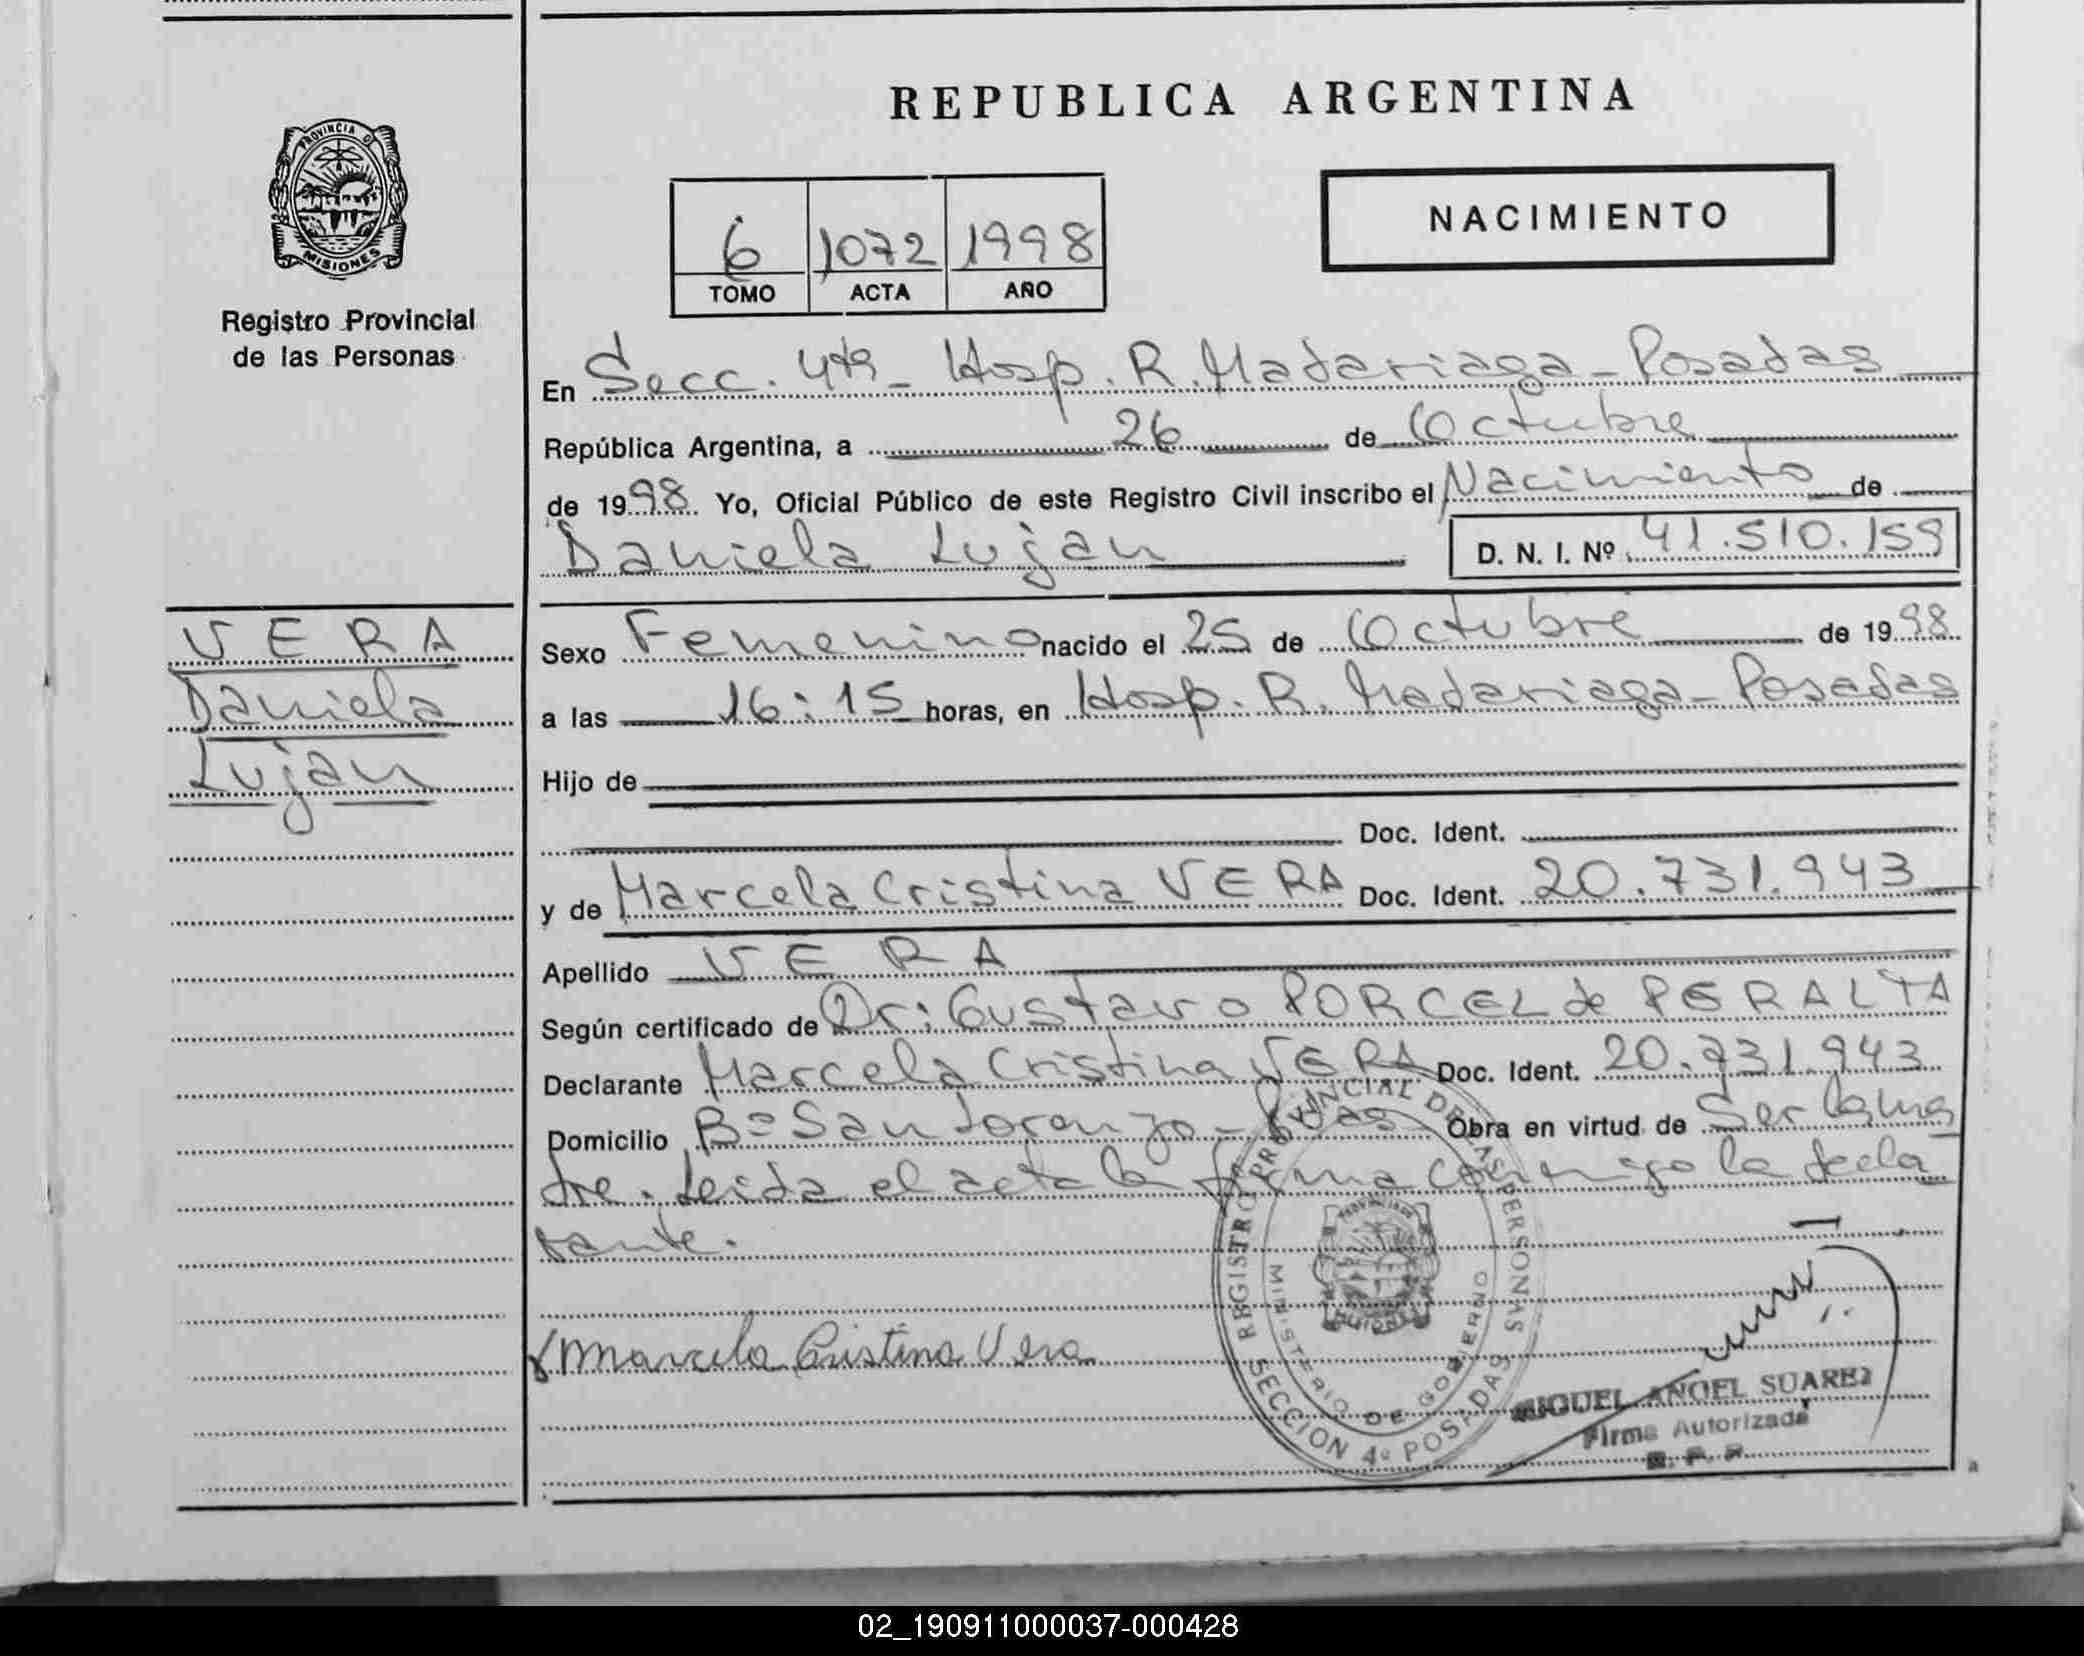 REPUBLICA ARGENTINA
PROVINCIA DE
MISIONES
Registro Provincial
de las Personas
6 1072 1998
TOMO ACTA AÑO
NACIMIENTO
En Secc. 4ta - Hosp. R. Madariaga - Posadas
República Argentina, a 26 de Octubre
de 1998 Yo, Oficial Público de este Registro Civil inscribo el Nacimiento de
Daniela Lujan D. N. I. Nº 41.510.159
VERA
Daniela
Lujan
Sexo Femenino nacido el 25 de Octubre de 1998
a las 16:15 horas, en Hosp. R. Madariaga - Posadas
Hijo de
Doc. Ident.
y de Marcela Cristina VERA Doc. Ident. 20.731.943
Apellido VERA
Según certificado de Dr: Gustavo PORCEL de PERALTA
Declarante Marcela Cristina VERA Doc. Ident. 20.731.943
Domicilio Bº San Lorenzo - Pdas Obra en virtud de Ser la ma
dre. Leida el acta la firma conmigo la decla
rante.
Marcela Cristina Vera
REGISTRO PROVINCIAL DE LAS PERSONAS
MINISTERIO DE GOBIERNO
SECCION 4º POSADAS
MIGUEL ANGEL SUAREZ
Firma Autorizada
R. P. P.
02_190911000037-000428